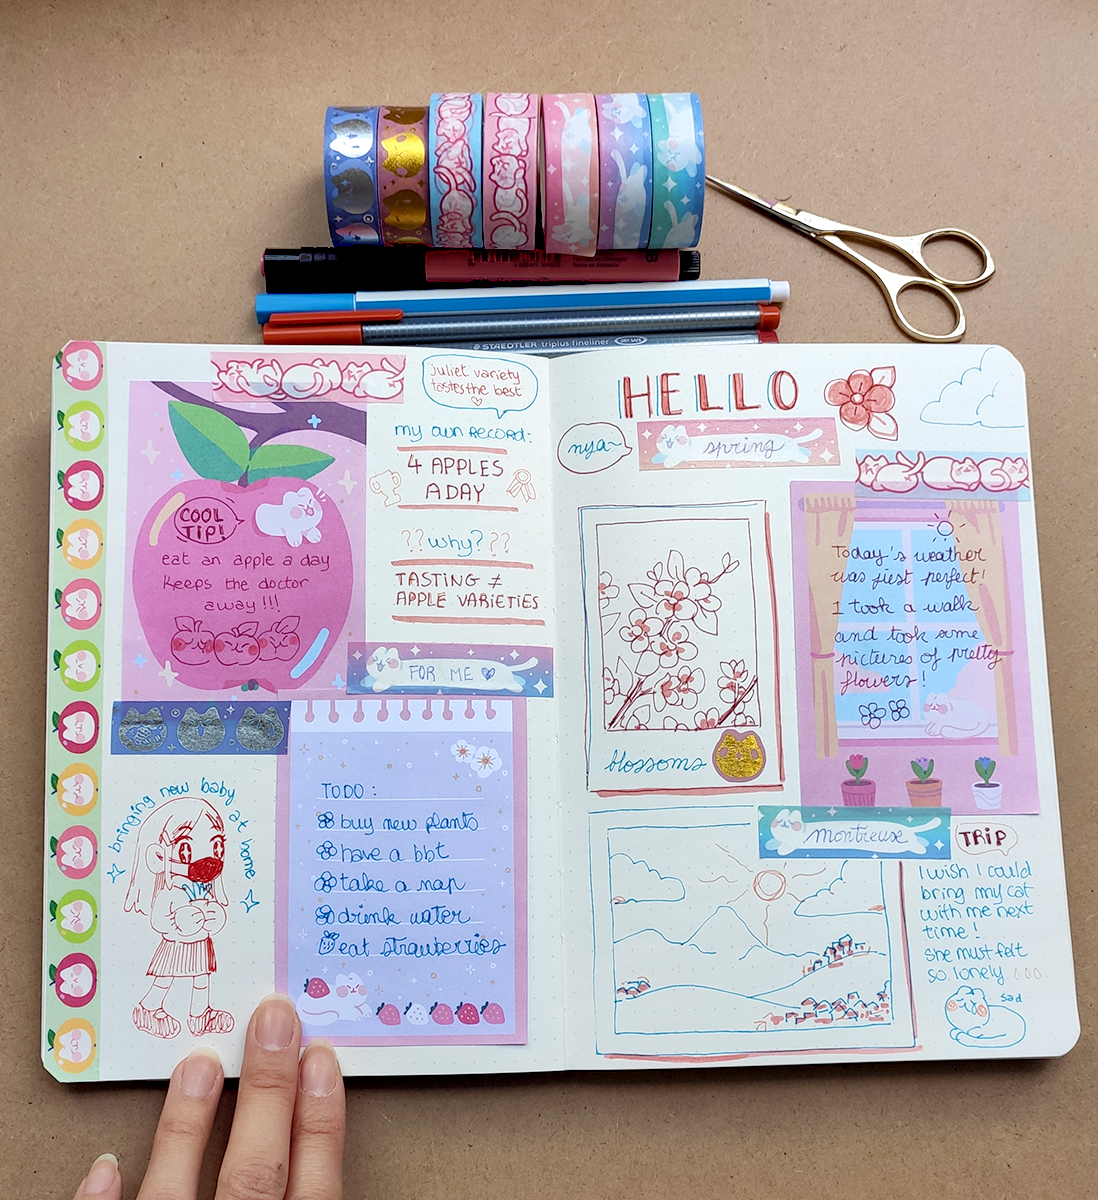 STAEDTLER triplus fineliner
DRY SAFE
juliet variety
tastes the best
my own RECORD:
4 APPLES
A DAY
??why???
TASTING ≠
APPLE VARIETIES
COOL
TIP!
eat an apple a day
keeps the doctor
away!!!
FOR ME
bringing new baby at home
TODO:
buy new plants
have a bbt
take a nap
drink water
eat strawberries
HELLO
nya~
spring
Today's weather
was just perfect!
I took a walk
and took some
pictures of pretty
flowers!
blossoms
montreux
TRIP
I wish I could
bring my cat
with me next
time!
she must felt
so lonely ...
sad